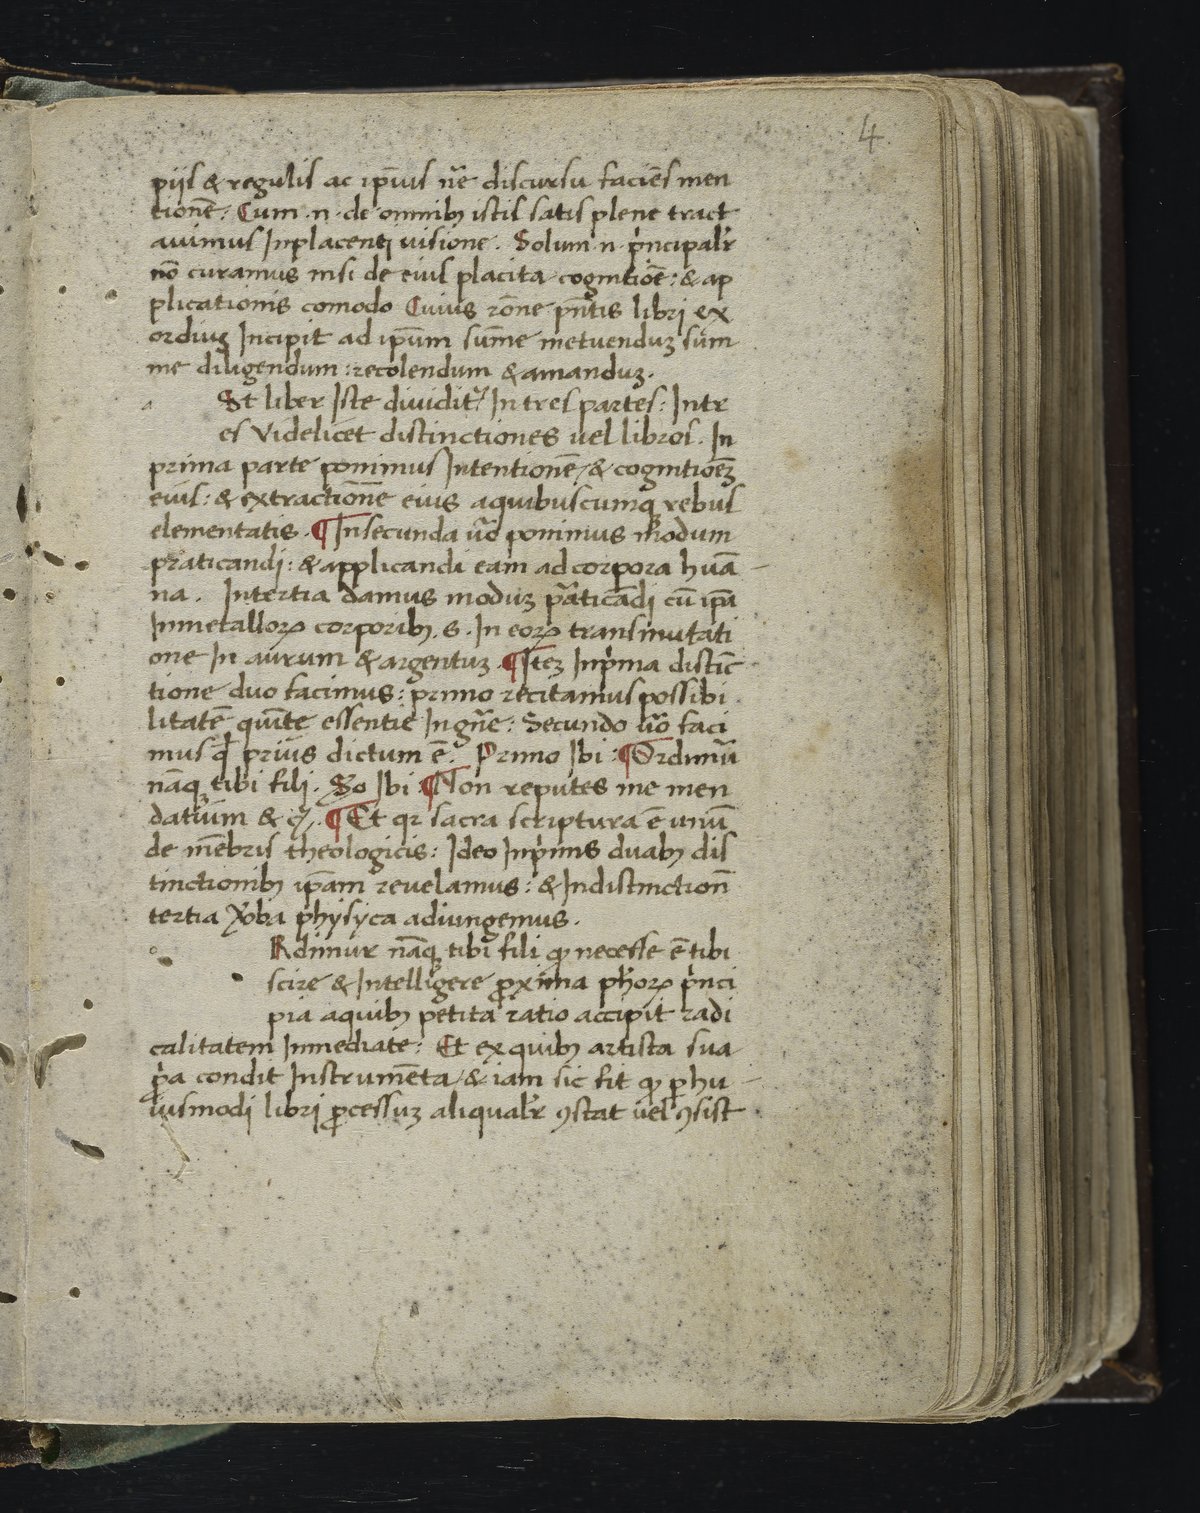 4
piis & regulis ac ipīus nr̄e discursu faciēs men
tionē: Cum .n. de omnibꝫ istis satis plene tract
auimus Inplacenti uisione. Solum .n. pͥncipalr̄
nō curamus nisi de eius placita cognitiōe: & ap
plicationis comodo Cuius rōne pn̄tis libri ex
ordiuꝫ Incipit ad ip̄um sūme metuenduꝫ sum
me diligendum: recolendum & amanduꝫ.
St liber Iste diuiditͬ In tres partes: Intr
es Videlicet distinctiones uel libros. In
prima parte ponimus Intentionē, & cognitiōeꝫ
eius: & extractionē eius aquibuscumqꝫ rebus
elementatis. ¶Insecunda uͦo ponimus modum
praticandi: & applicandi eam ad corpora huā
na. Intertia damus moduꝫ pͣaticādi cū ip̄a
Inmetalloꝝ corporibꝫ .s. In eoꝝ transmutati
one In aurum & argentuꝫ. ¶Iteꝫ Inpͥma distīc
tione duo facimus: primo recitamus possibi
litatē quīte essentie In gn̄e: Secundo uͦo faci
mus ꝙ prius dictum ē: Primo Ibi: ¶Ordinū
nāqꝫ tibi fili. So Ibi: ¶Non reputes me men
datium & c̄. ¶Et qꝛ sacra scriptura ē unū
de mēbris theologicis: Ideo Inpͥmis duabꝫ dis
tinctionibꝫ ip̄am reuelamus: & Indistinctionē
tertia ẏba physyca adiungemus.
Rdimur nāqꝫ tibi fili ꝙ necesse ē tibi
scire & Intelligere ꝓxima ph̄oꝝ pͥnci
pia aquibꝫ petita ratio accipit radi
calitatem Inmediate: Et ex quibꝫ artista sua
pͥa condit Instrumēta, & iam sic fit ꝙ ꝑ hu
iusmodi libri ꝓcessuꝫ aliqualr̄ ꝯstat uel ꝯsist